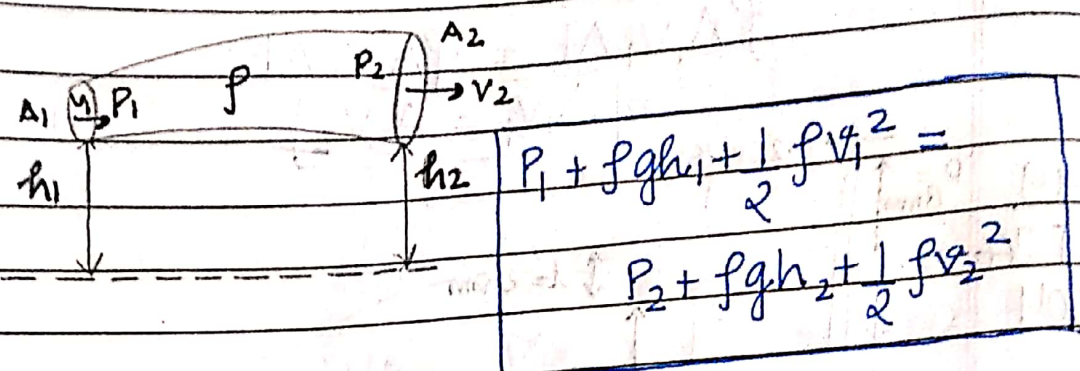 A2
P2
→ V2
A1 V1 P1 ρ
h1
h2
P₁ + ρgh₁ + 1/2 ρv₁² =
P₂ + ρgh₂ + 1/2 ρv₂²